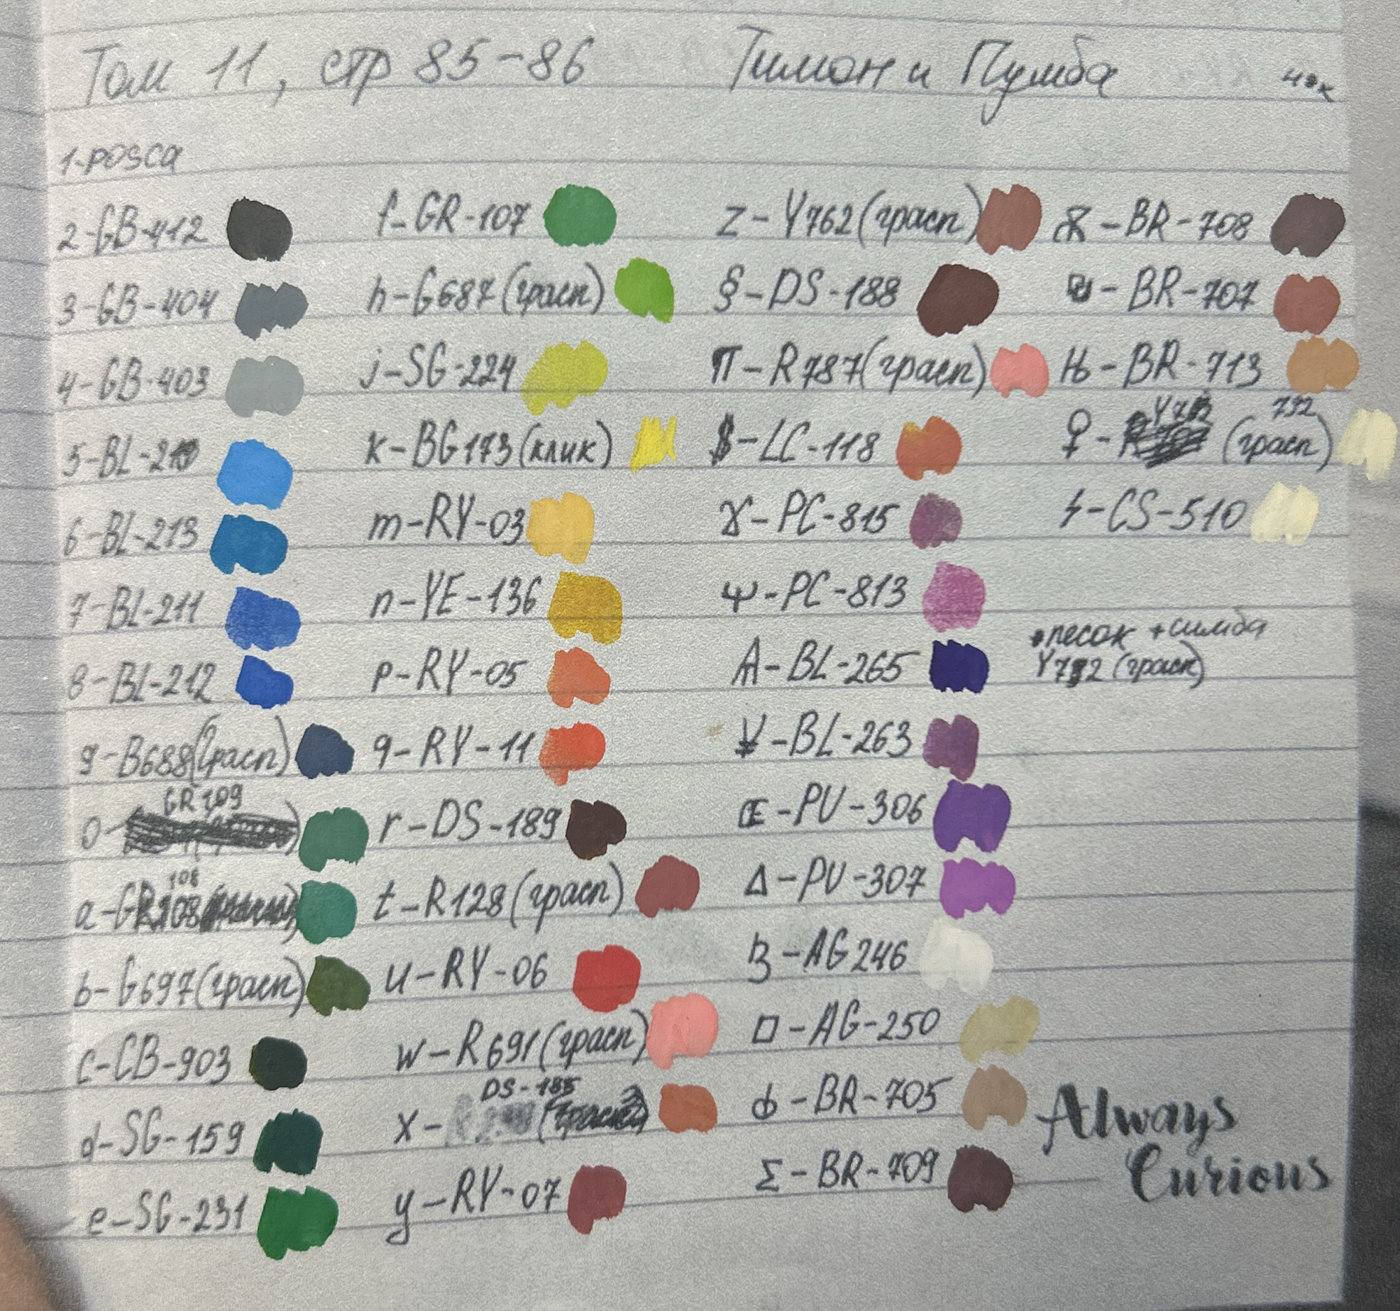 Том 11, стр 85-86 Тимон и Пумба
1-posca
2-GB-412
3-GB-404
4-GB-403
5-BL-210
6-BL-213
7-BL-211
8-BL-212
9-B688(грасп)
0- GR 109
a-GR108
b-G697(грасп)
c-CB-903
d-SG-159
e-SG-231
f-GR-107
h-G687(грасп)
j-SG-224
k-BG173(клик)
m-RY-03
n-YE-136
p-RY-05
q-RY-11
r-DS-189
t-R128(грасп)
u-RY-06
w-R691(грасп)
x- DS-185
y-RY-07
z-Y762(грасп)
§-DS-188
π-R787(грасп)
$-LC-118
ɣ-PC-815
ψ-PC-813
A-BL-265
¥-BL-263
Œ-PU-306
Δ-PU-307
В-AG246
□-AG-250
ф-BR-705
Σ-BR-709
Ж-BR-708
-BR-707
Њ-BR-713
♀- 792 (грасп)
ϟ-CS-510
•песок +симба
Y792 (грасп)
Always
Curious